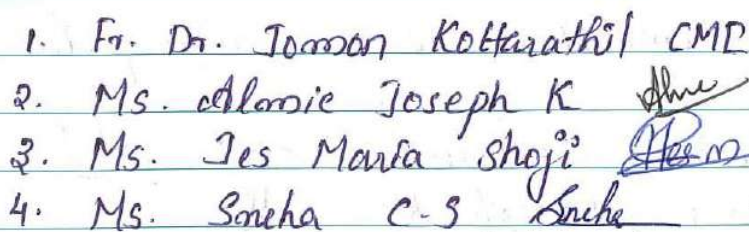 1. Fr. Dr. Jomon Kottarathil CMI
2. Ms. Almie Joseph K
3. Ms. Jes Maria Shoji
4. Ms. Sneha C-S Sneha